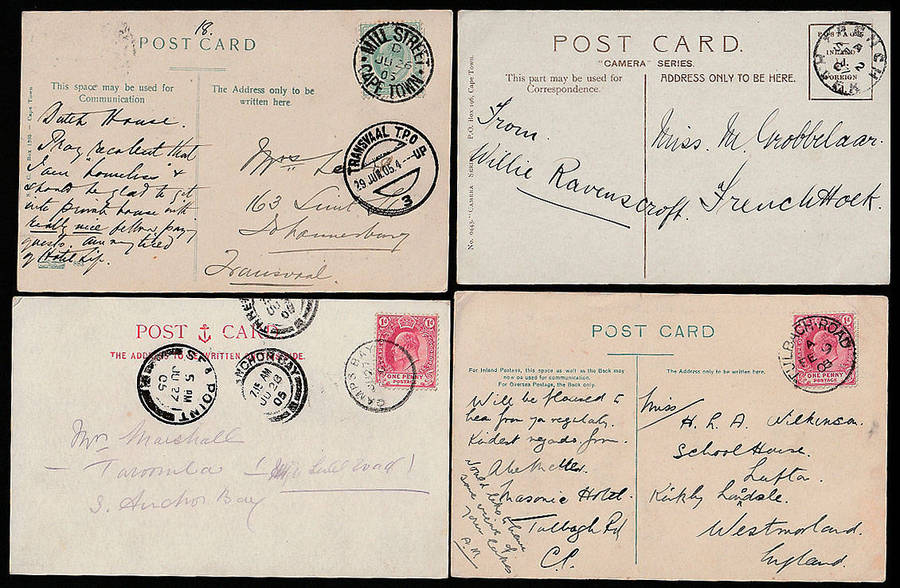 18.
POST CARD
This space may be used for
Communication
The Address only to be
written here.
MILL STREET
D
JU 26
05
CAPE TOWN
TRANSVAAL T.P.O
UP
29 JUN.05.4
3
Dutch House.
Pray recollect that
I am "homeless" &
should be glad to get
into private house with
really nice fellows paying
guests. Am very tired
of Hotel life.
Mrs Le
163
Johannesburg
Transvaal
POST CARD.
"CAMERA" SERIES.
This part may be used for
Correspondence.
ADDRESS ONLY TO BE HERE.
INLAND
FOREIGN
No. 0443. "CAMERA" SERIES. P.O. Box 196, Cape Town.
From
Willie Ravenscroft.
Miss. M. Grobbelaar.
French Hoek.
POST CARD
THE ADDRESS TO
SEA POINT
5 PM
JU 27
05
ANCHOR BAY
7 15 AM
JU 28
05
CAMPS BAY
1d
ONE PENNY
POSTAGE
Mr. Marshall
Taroomba
Road)
S. Anchor Bay
POST CARD
For Inland Postage, this space as well as the Back may
now be used for communication.
For Overseas Postage, the Back only.
The Address only to be written here.
TULBAGH ROAD
A
FE 9
03
1d
ONE PENNY
POSTAGE
Will be pleased to
hear from you regularly.
Kindest regards from
Abe
Masonic Hotel.
Tulbagh Rd
C.C.
Would like to have
some views of
your Lakes
A.M.
Miss
H. L. A. Wilkinson
School House.
Lupton.
Kirkby Lonsdale.
Westmorland.
England.